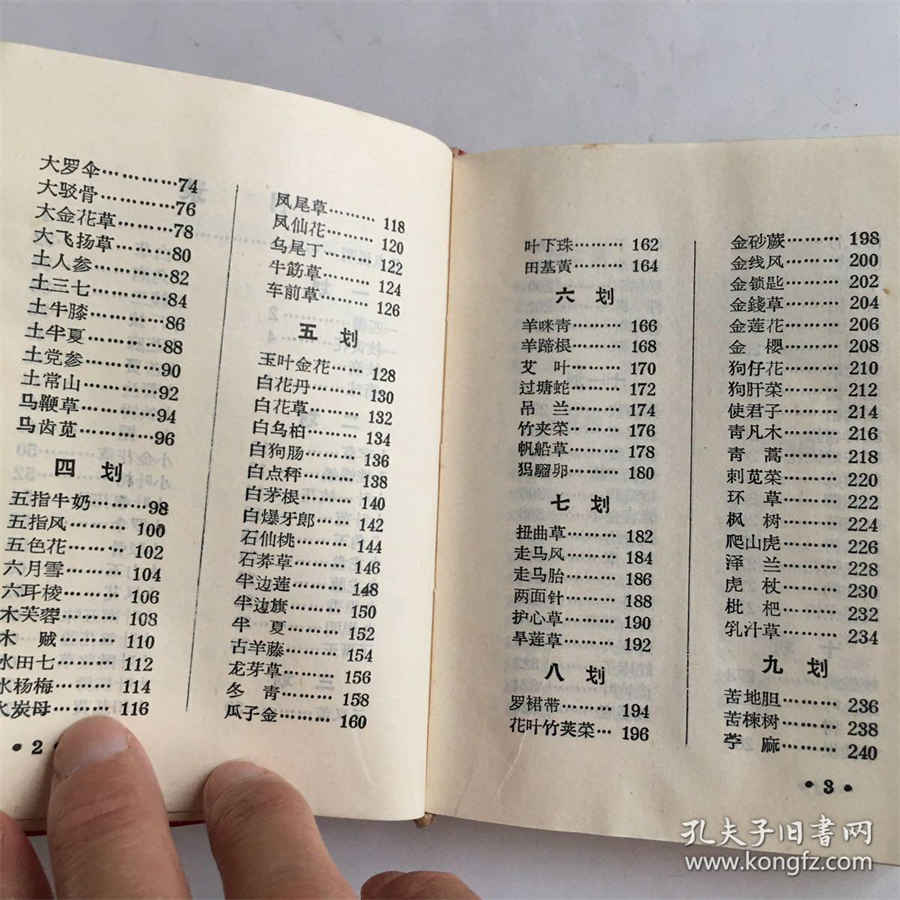 大罗伞…………74
大驳骨…………76
大金花草………78
大飞扬草………80
土人参…………82
土三七…………84
土牛膝…………86
土半夏…………88
土党参…………90
土常山…………92
马鞭草…………94
马齿苋…………96
四 划
五指牛奶………98
五指风…………100
五色花…………102
六月雪…………104
六耳棱…………106
木芙蓉…………108
木 贼…………110
水田七…………112
水杨梅…………114
火炭母…………116
• 2
凤尾草………118
凤仙花………120
乌尾丁………122
牛筋草………124
车前草………126
五 划
玉叶金花……128
白花丹………130
白花草………132
白乌桕………134
白狗肠………136
白点秤………138
白茅根………140
白爆牙郎……142
石仙桃………144
石荠草………146
半边莲………148
半边旗………150
半 夏………152
古羊藤………154
龙芽草………156
冬 青………158
瓜子金………160
叶下珠………162
田基黄………164
六 划
羊咪青………166
羊蹄根………168
艾 叶………170
过塘蛇………172
吊 兰………174
竹夹菜………176
帆船草………178
179
七 划
扭曲草………182
走马风………184
走马胎………186
两面针………188
护心草………190
旱莲草………192
八 划
罗裙带………194
花叶竹荚菜…196
金砂蕨………198
金线风………200
金锁匙………202
金錢草………204
金莲花………206
金 樱………208
狗仔花………210
狗肝菜………212
使君子………214
青凡木………216
青 蒿………218
刺苋菜………220
环 草………222
枫 树………224
爬山虎………226
泽 兰………228
虎 杖………230
枇 杷………232
乳汁草………234
九 划
苦地胆………236
苦楝树………238
苧 麻………240
• 3 •
孔夫子旧書网
www.kongfz.com